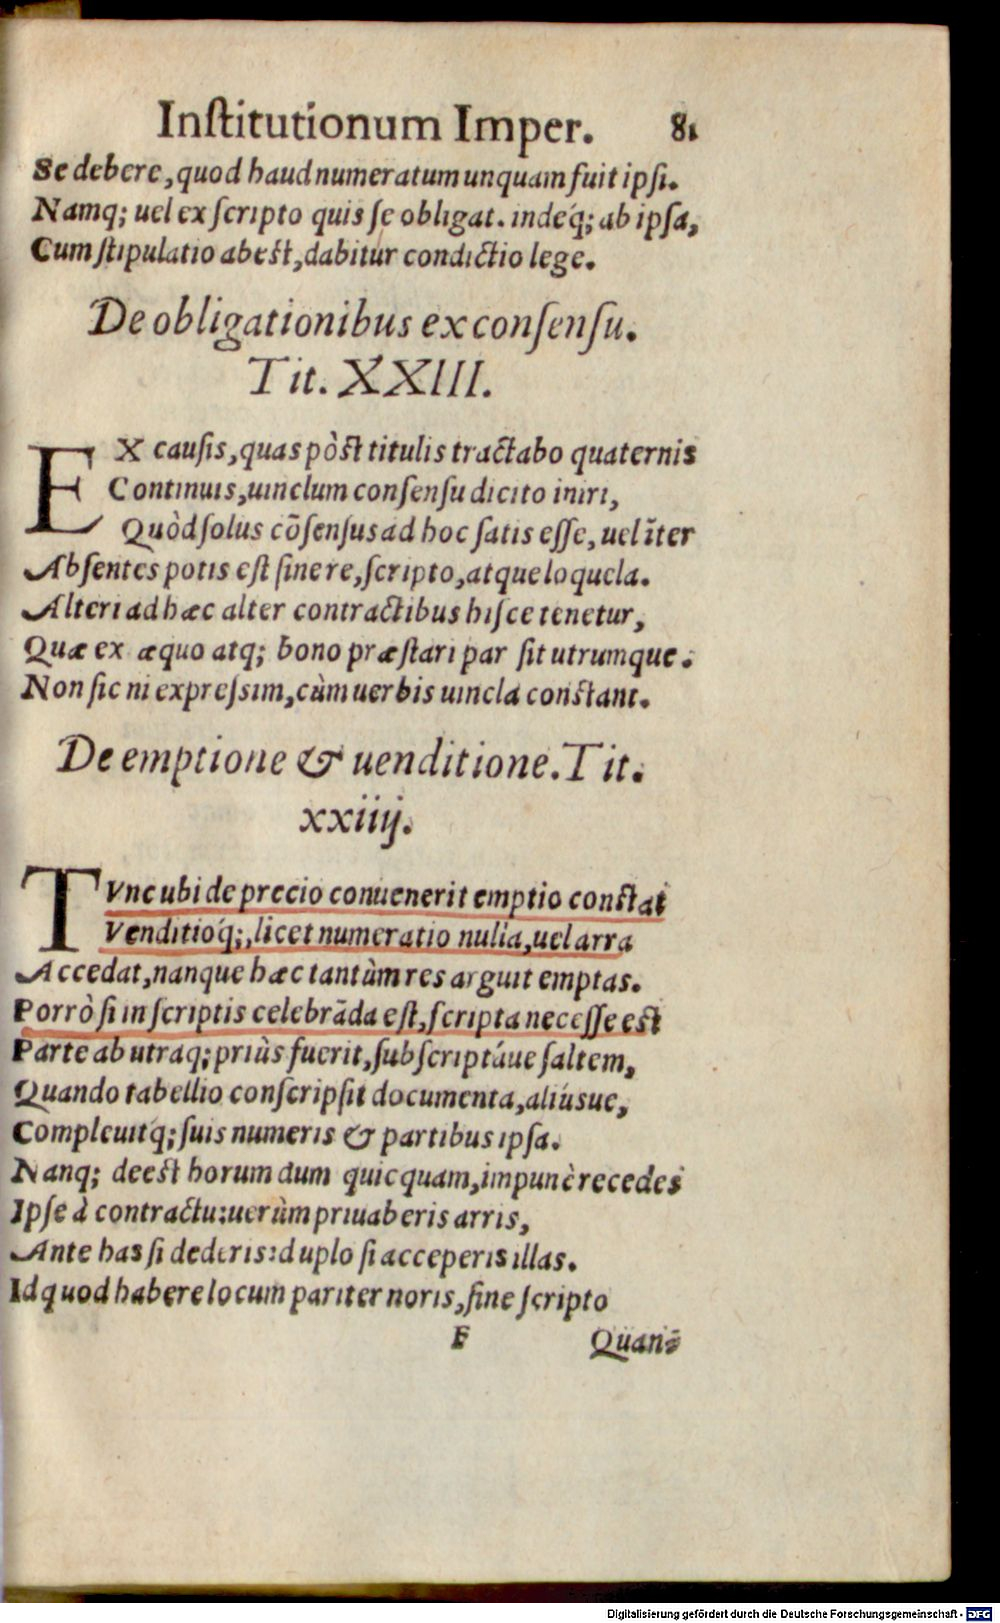 Inſtitutionum Imper. 81
Se debere, quod haud numeratum unquam fuit ipſi.
Namq; uel ex ſcripto quis ſe obligat. indeq́; ab ipſa,
Cum ſtipulatio abeſt, dabitur condictio lege.
De obligationibus ex conſenſu.
Tit. XXIII.
EX cauſis, quas pòſt titulis tractabo quaternis
Continuis, uinclum conſenſu dicito iniri,
Quòd ſolus cõſenſus ad hoc ſatis eſſe, uel ĩter
Abſentes potis eſt ſine re, ſcripto, atque loquela.
Alteri ad hæc alter contractibus hiſce tenetur,
Quæ ex æquo atq; bono præſtari par ſit utrumque.
Non ſic ni expreſsim, cùm uerbis uincla conſtant.
De emptione & uenditione. Tit.
xxiiij.
TVnc ubi de precio conuenerit emptio conſtat
Venditioq́;, licet numeratio nulla, uel arra
Accedat, nanque hæc tantùm res arguit emptas.
Porrò ſi in ſcriptis celebrãda eſt, ſcripta neceſſe eſt
Parte ab utraq; priùs fuerit, ſubſcriptáue ſaltem,
Quando tabellio conſcripſit documenta, aliúsue,
Compleuitq́; ſuis numeris & partibus ipſa.
Nanq; deeſt horum dum quicquam, impunè recedes
Ipſe à contractu: uerùm priuaberis arris,
Ante has ſi dederis: duplo ſi acceperis illas.
Id quod habere locum pariter noris, ſine ſcripto
F Quan-
Digitalisierung gefördert durch die Deutsche Forschungsgemeinschaft - DFG